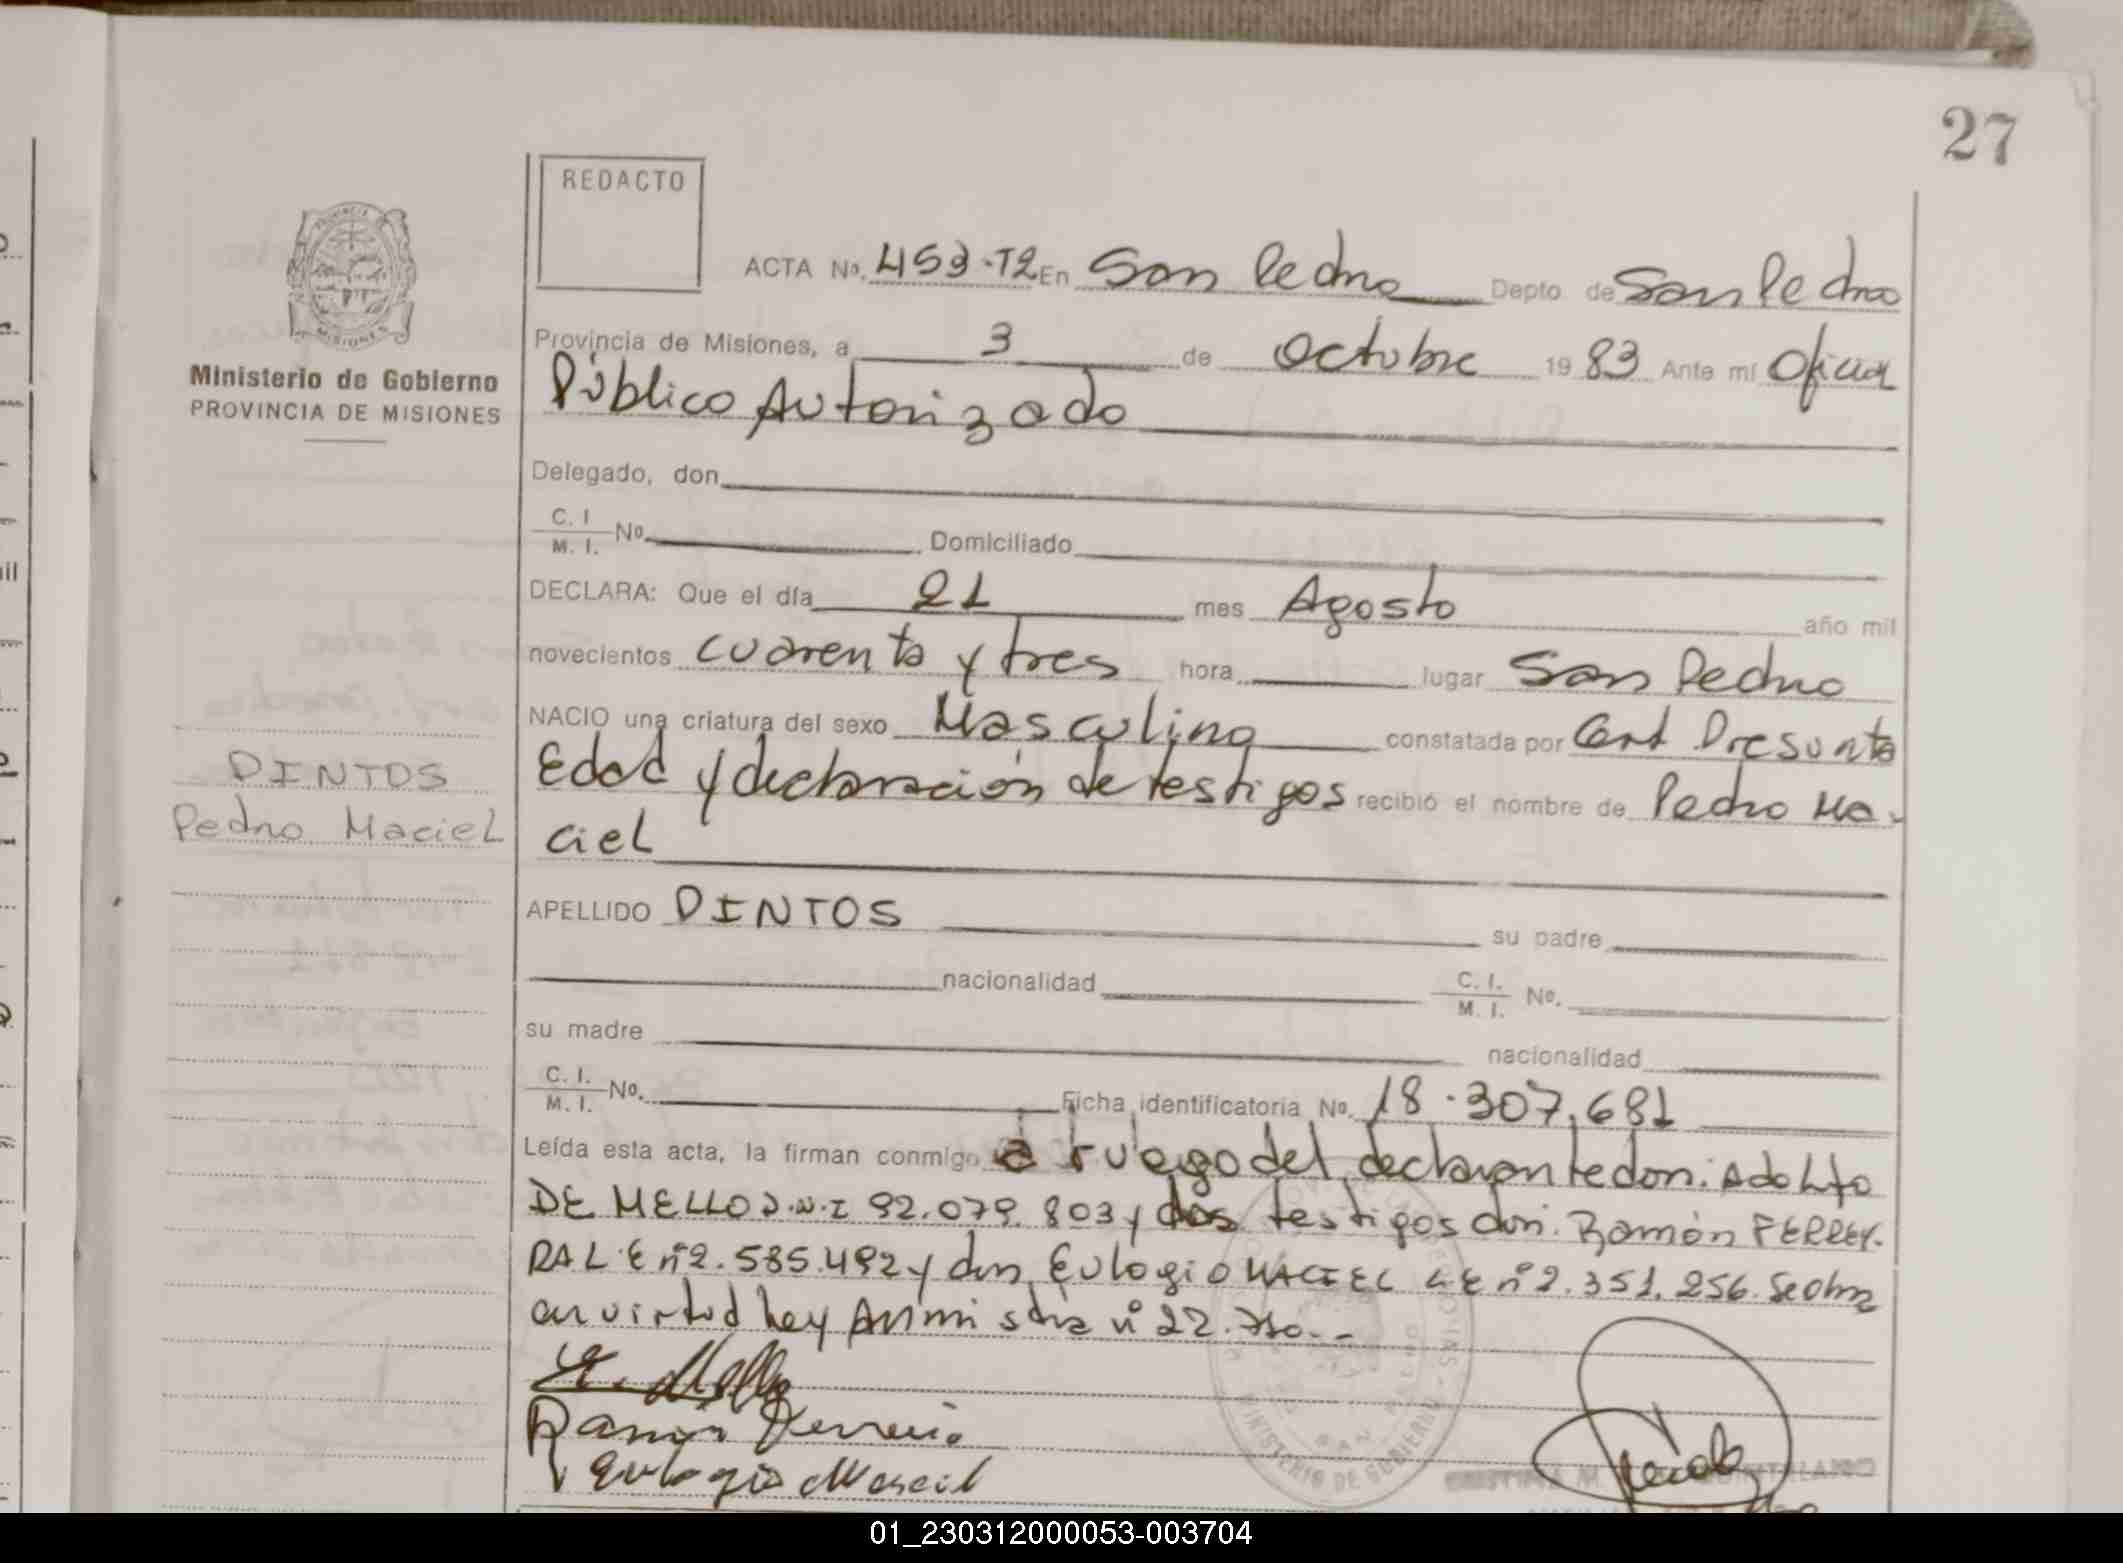 27
REDACTO
ACTA No. 453-T2 En San Pedro Depto de San Pedro
Provincia de Misiones, a 3 de Octubre 1983 Ante mí Oficial
Público Autorizado
Ministerio de Gobierno
PROVINCIA DE MISIONES
Delegado, don
C. I
M. I. No. Domiciliado
DECLARA: Que el día 21 mes Agosto año mil
novecientos cuarenta y tres hora lugar San Pedro
NACIO una criatura del sexo Masculino constatada por Cert Presunta
Edad y declaración de testigos recibió el nombre de Pedro Ma-
ciel
PINTOS
Pedro Maciel
APELLIDO PINTOS su padre
nacionalidad C. I.
M. I. No.
su madre nacionalidad
C. I.
M. I. No. Ficha identificatoria No. 18.307.681
Leída esta acta, la firman conmigo a ruego del declarante don: Adolfo
DE MELLO D.N.I 92.079.803 y dos testigos don: Ramón FERREY-
RA L.E nº 2.585.492 y don Eulogio MACIEL L E nº 2.351.256. Se obra
en virtud Ley Amnistia nº 22.710.-
Ramón Ferreira
Eulogio Maciel
MINISTERIO DE GOBIERNO
01_230312000053-003704